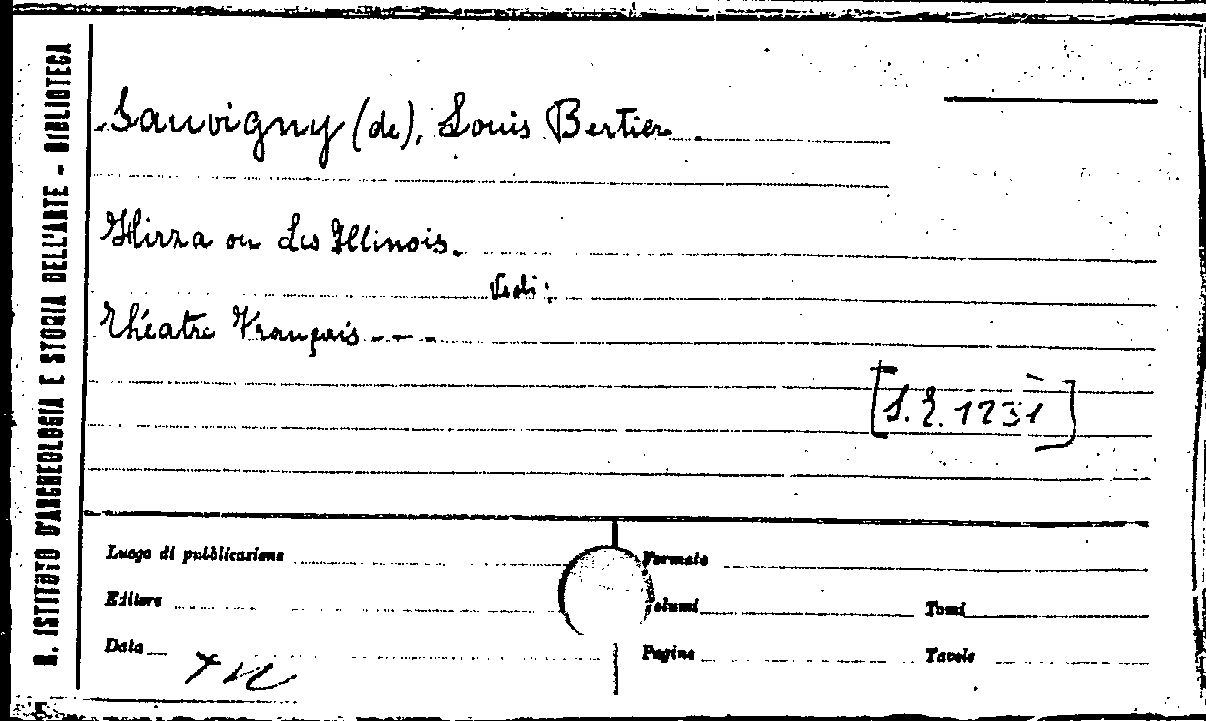 R. ISTITUTO D'ARCHEOLOGIA E STORIA DELL'ARTE - BIBLIOTECA
Sauvigny (de), Louis Bertier.
Hirza ou Les Illinois.
Vedi:
Théatre Français - - -
[S. E. 1231]
Luogo di pubblicazione
Formato
Editore
Volumi
Tomi
Data
Pagine
Tavole